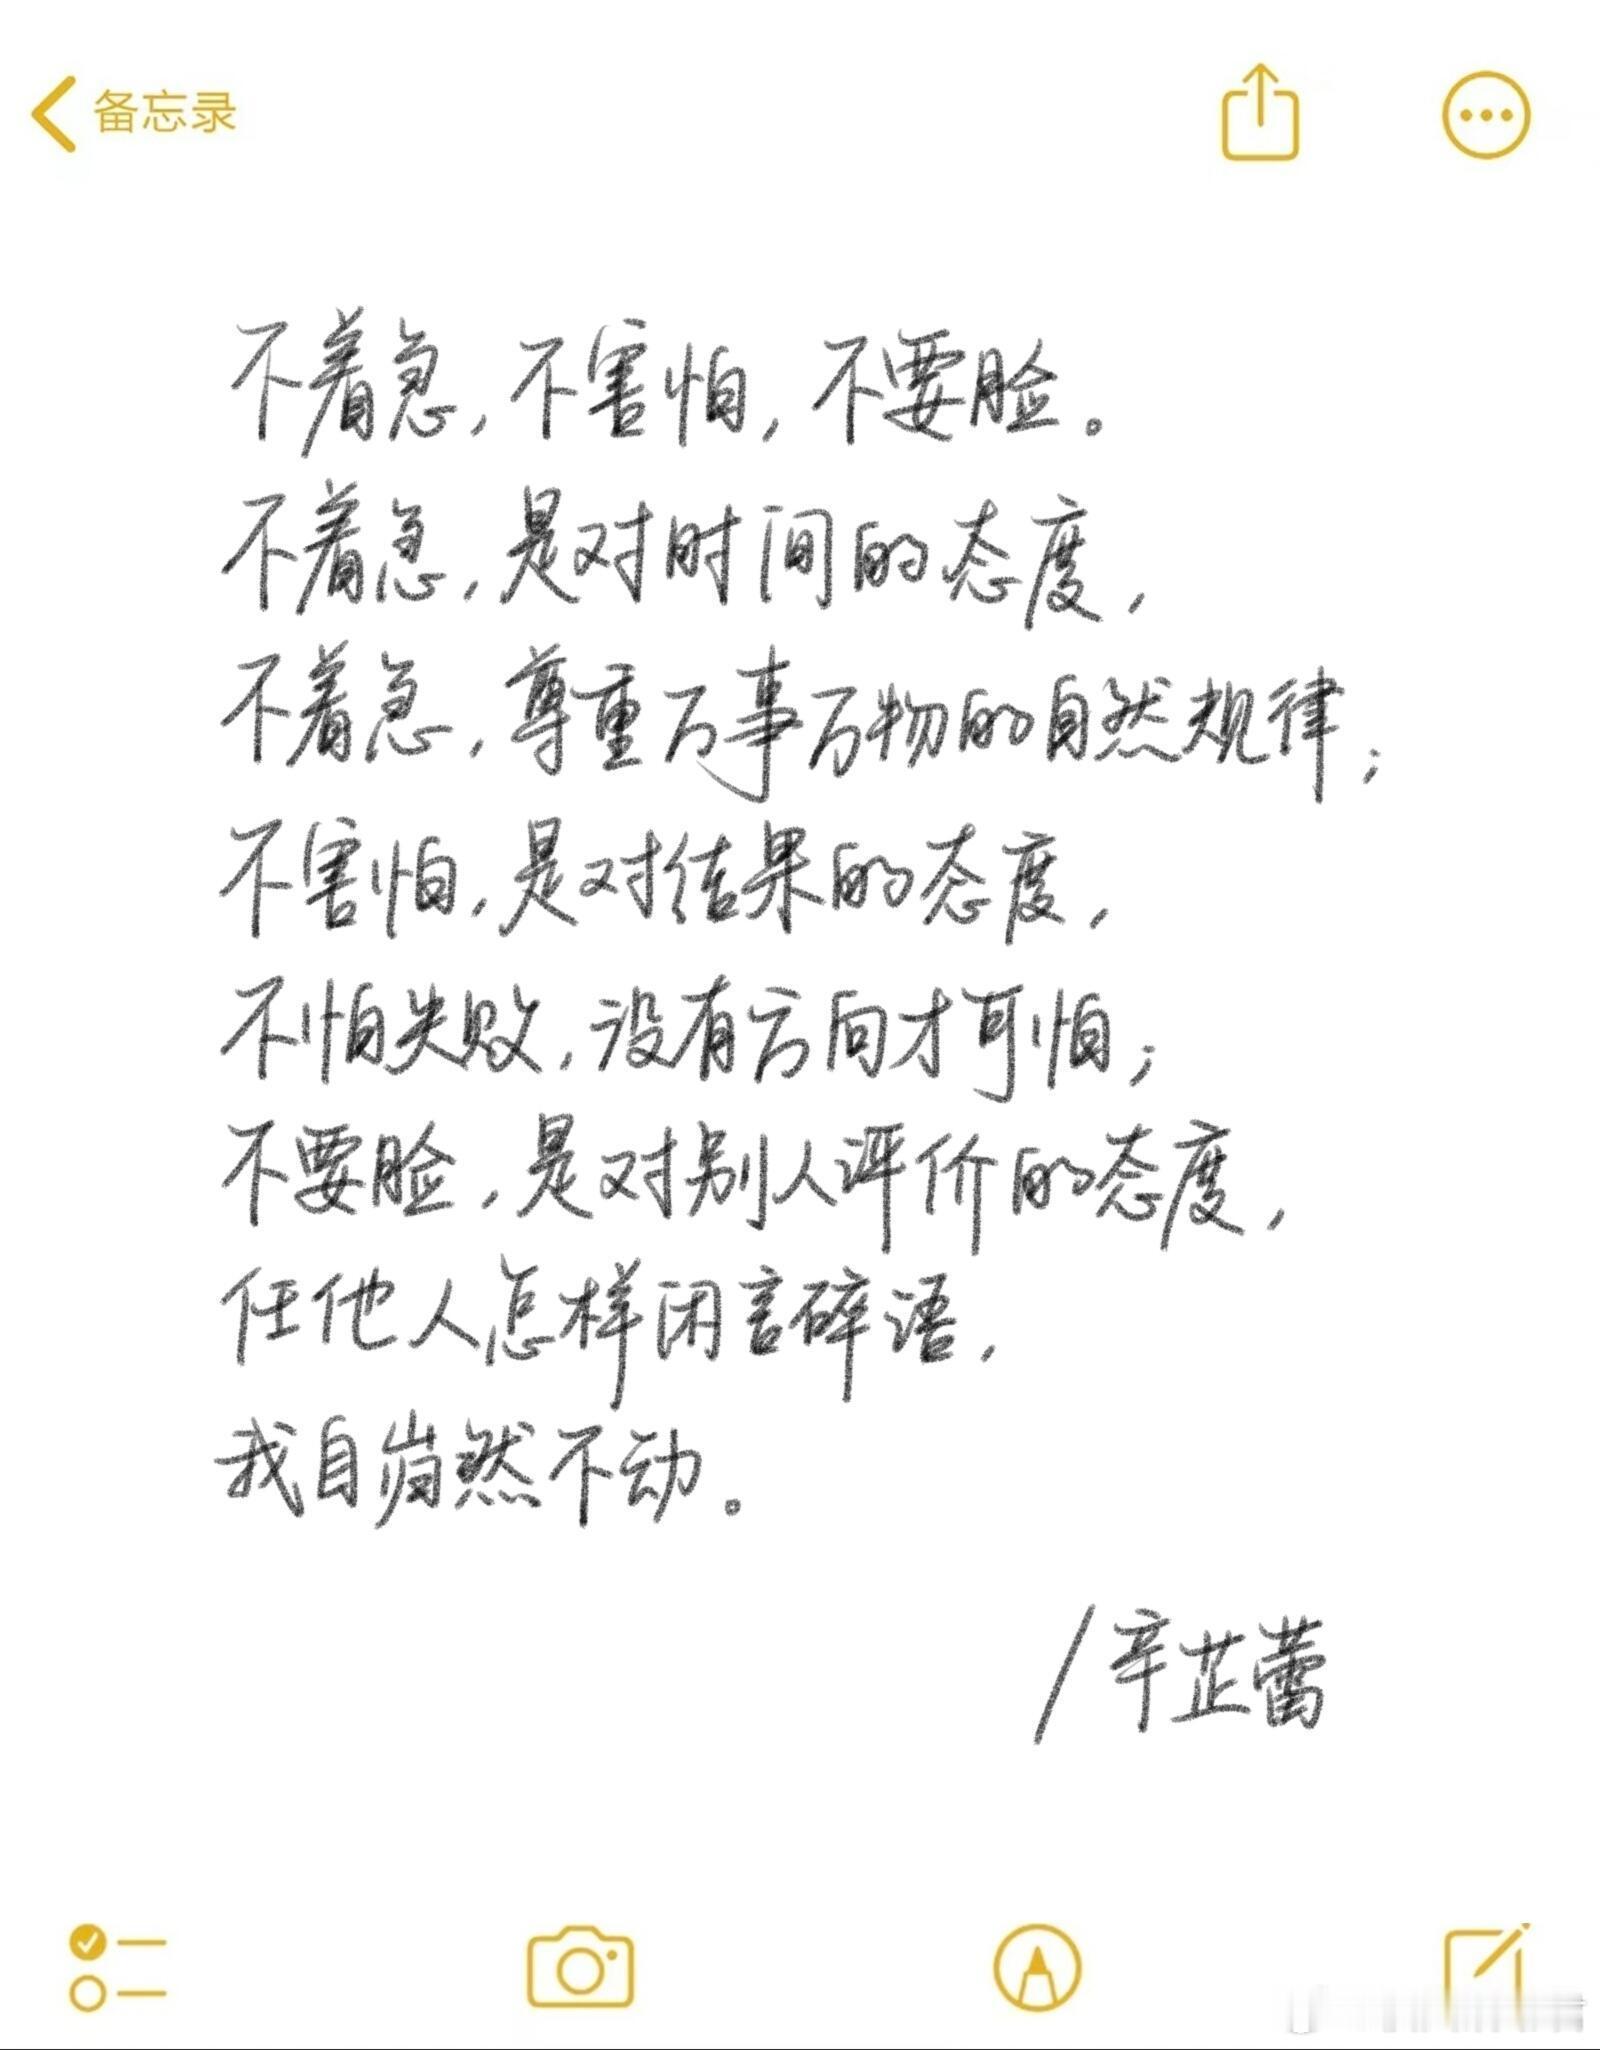 备忘录
不着急,不害怕,不要脸。
不着急,是对时间的态度,
不着急,尊重万事万物的自然规律;
不害怕,是对结果的态度,
不怕失败,没有方向才可怕;
不要脸,是对别人评价的态度,
任他人怎样闲言碎语,
我自岿然不动。
/辛芷蕾